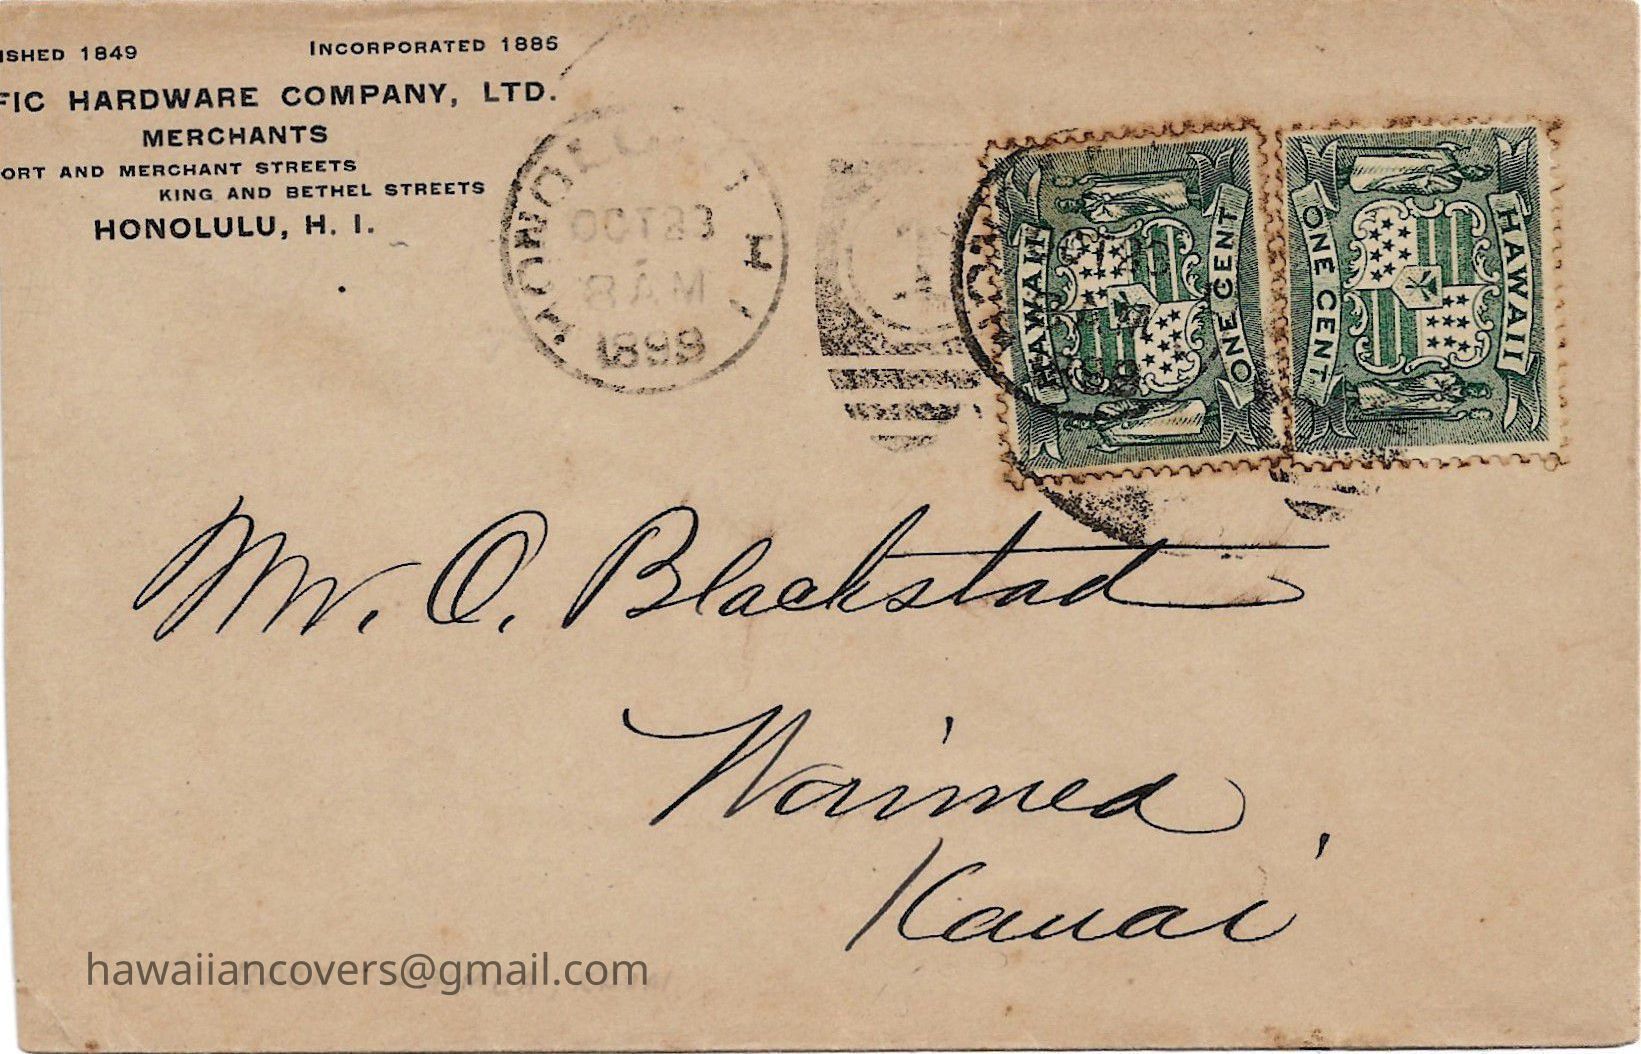 ISHED 1849 INCORPORATED 1886
FIC HARDWARE COMPANY, LTD.
MERCHANTS
ORT AND MERCHANT STREETS
KING AND BETHEL STREETS
HONOLULU, H. I.
HONOLULU H I
OCT 23
1899
HAWAII
ONE CENT
ONE CENT
HAWAII
Mr. O. Blackstad
Waimea,
Kauai
hawaiiancovers@gmail.com